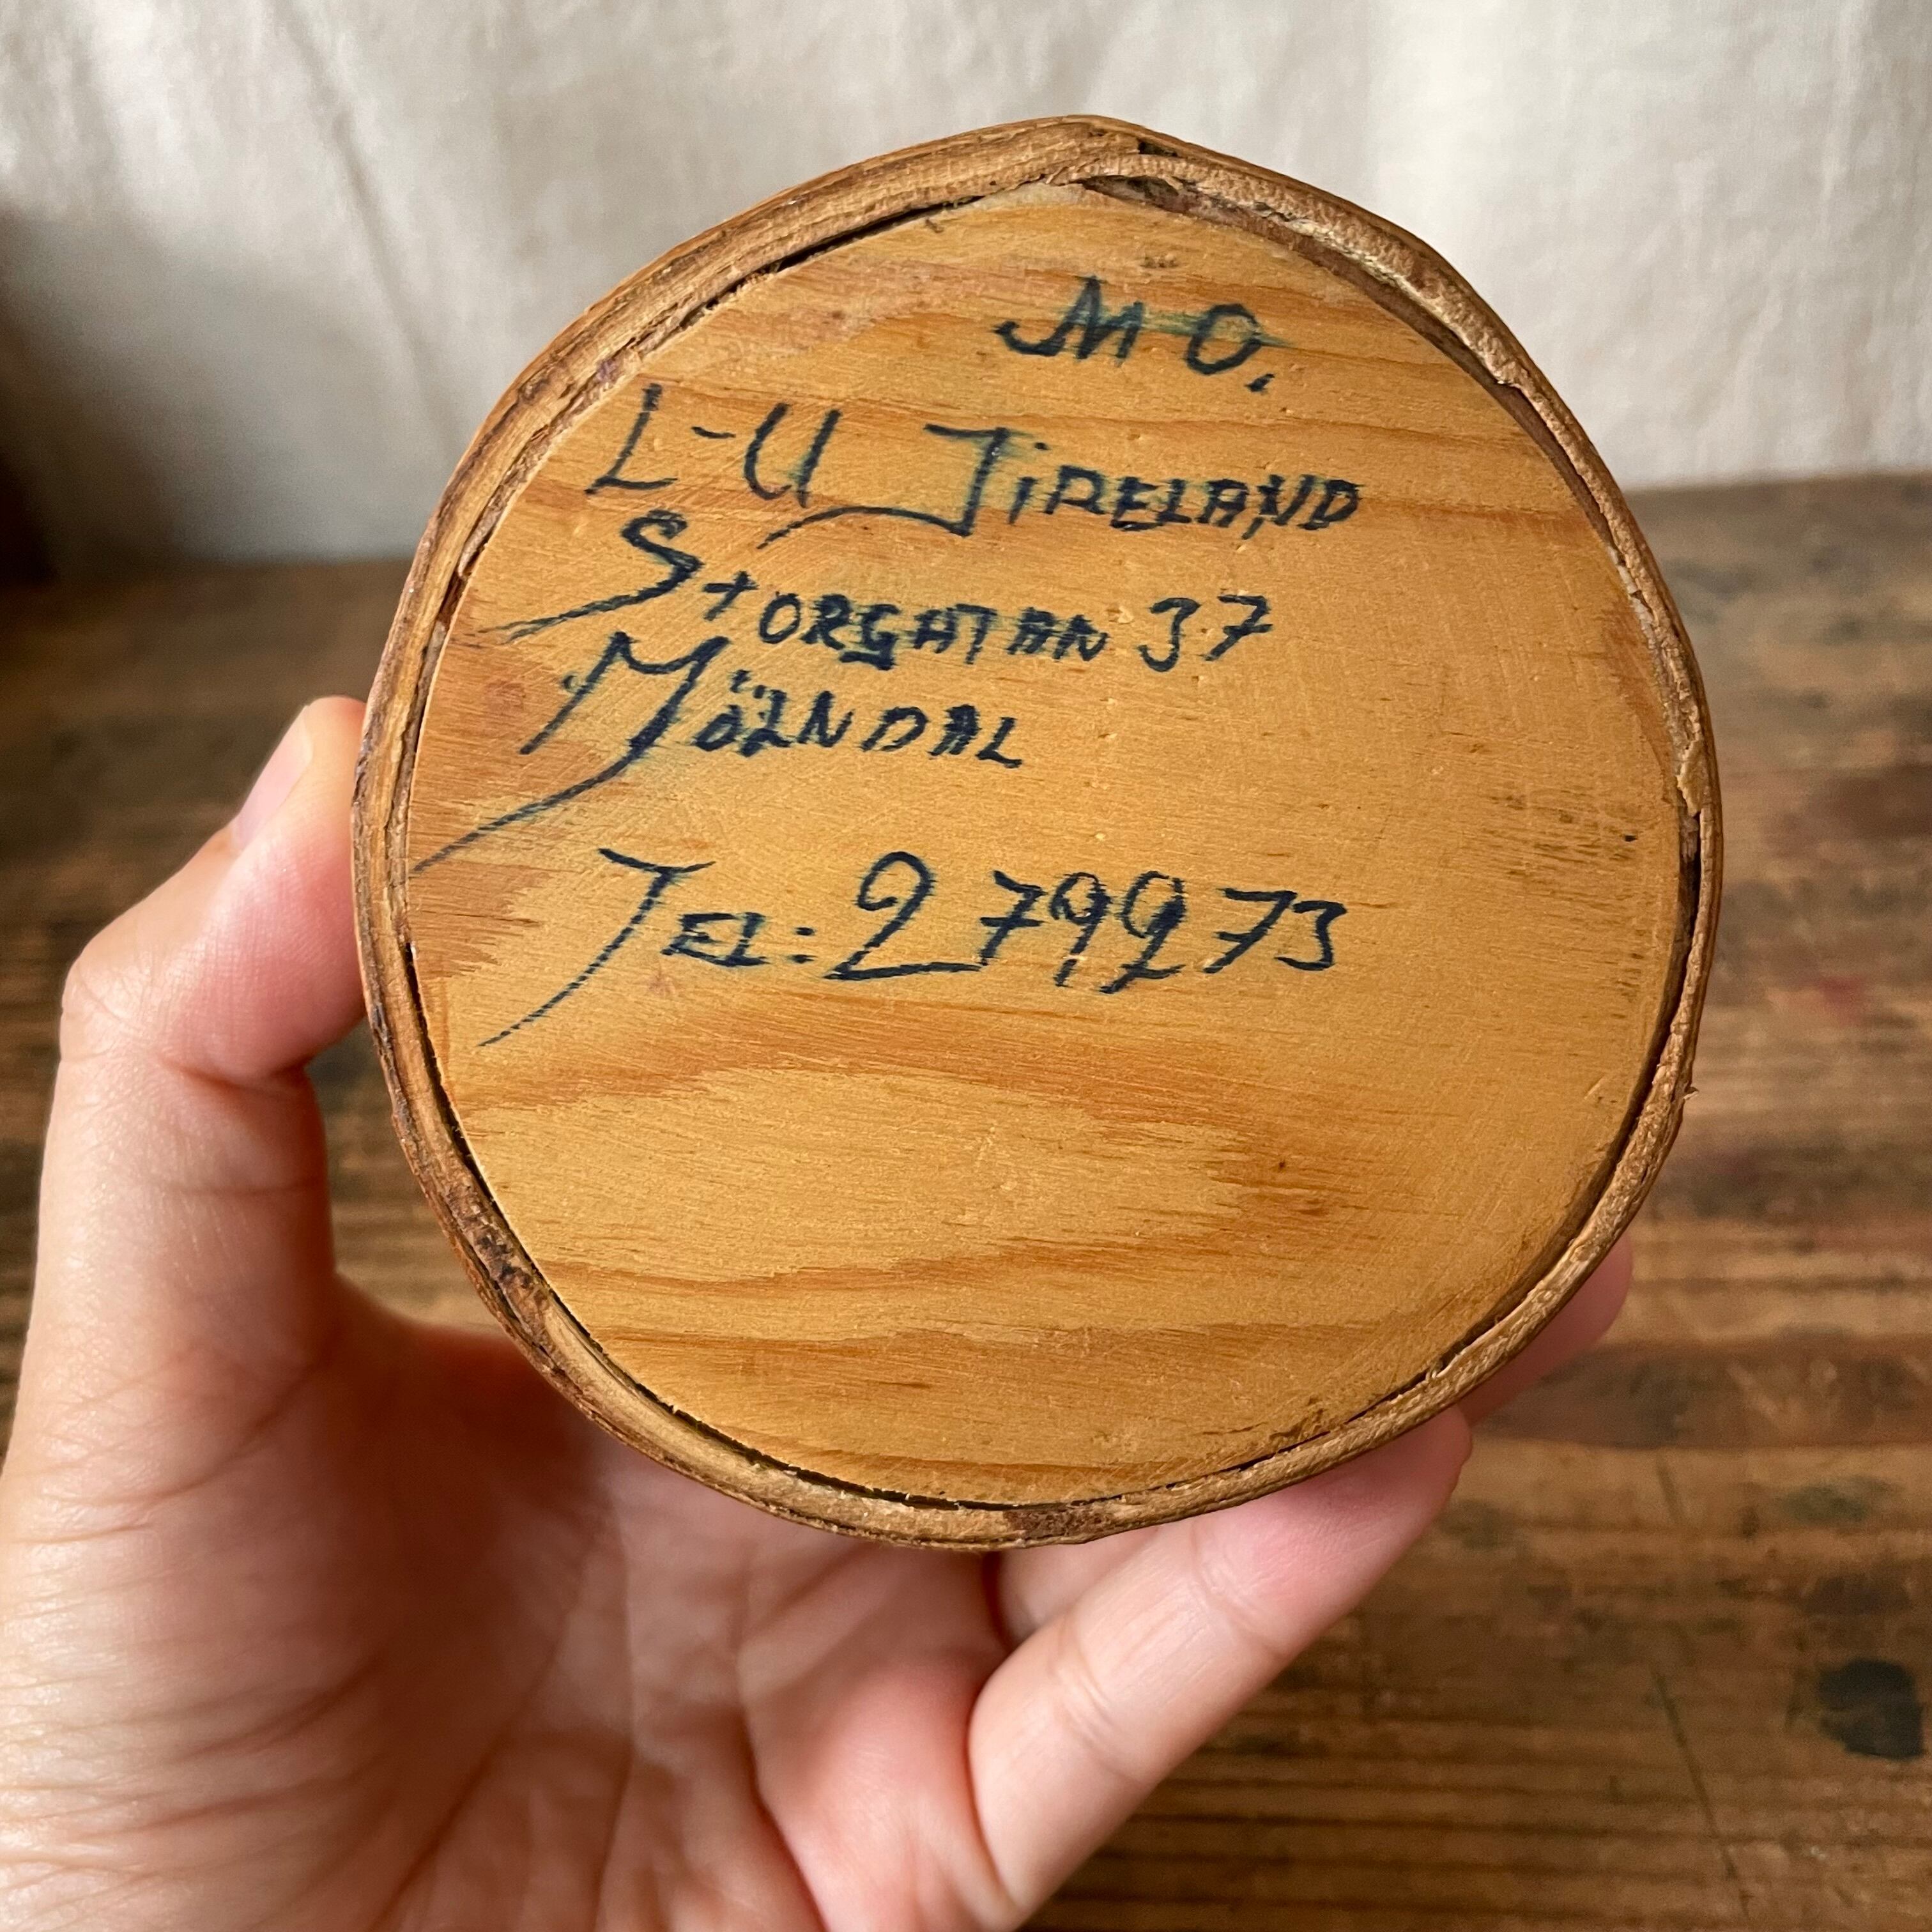 M O.
L-U JiRELAND
STORGATAN 37
MÖLNDAL
TEL: 279973